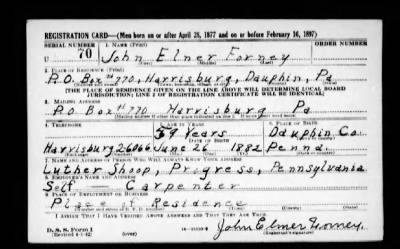 REGISTRATION CARD—(Men born on or after April 28, 1877 and on or before February 16, 1897)
SERIAL NUMBER 1. NAME (Print) ORDER NUMBER
U 70 John Elmer Forney
(First) (Middle) (Last)
2. PLACE OF RESIDENCE (Print)
P.O. Box #770, Harrisburg, Dauphin, Pa
[THE PLACE OF RESIDENCE GIVEN ON THE LINE ABOVE WILL DETERMINE LOCAL BOARD
JURISDICTION; LINE 2 OF REGISTRATION CERTIFICATE WILL BE IDENTICAL]
3. MAILING ADDRESS
P.O. Box #770 Harrisburg Pa
[Mailing address if other than place indicated on line 2. If same insert word same]
4. TELEPHONE 5. AGE IN YEARS 6. PLACE OF BIRTH
59 Years Dauphin Co.
DATE OF BIRTH
Harrisburg 26066 June 26 1882 Penna.
7. NAME AND ADDRESS OF PERSON WHO WILL ALWAYS KNOW YOUR ADDRESS
Luther Shoop, Progress, Pennsylvania
8. EMPLOYER'S NAME AND ADDRESS
Self — Carpenter
9. PLACE OF EMPLOYMENT OR BUSINESS
Place of Residence
I AFFIRM THAT I HAVE VERIFIED ABOVE ANSWERS AND THAT THEY ARE TRUE.
D. S. S. Form 1
(Revised 4-1-42) (over)
John Elmer Forney